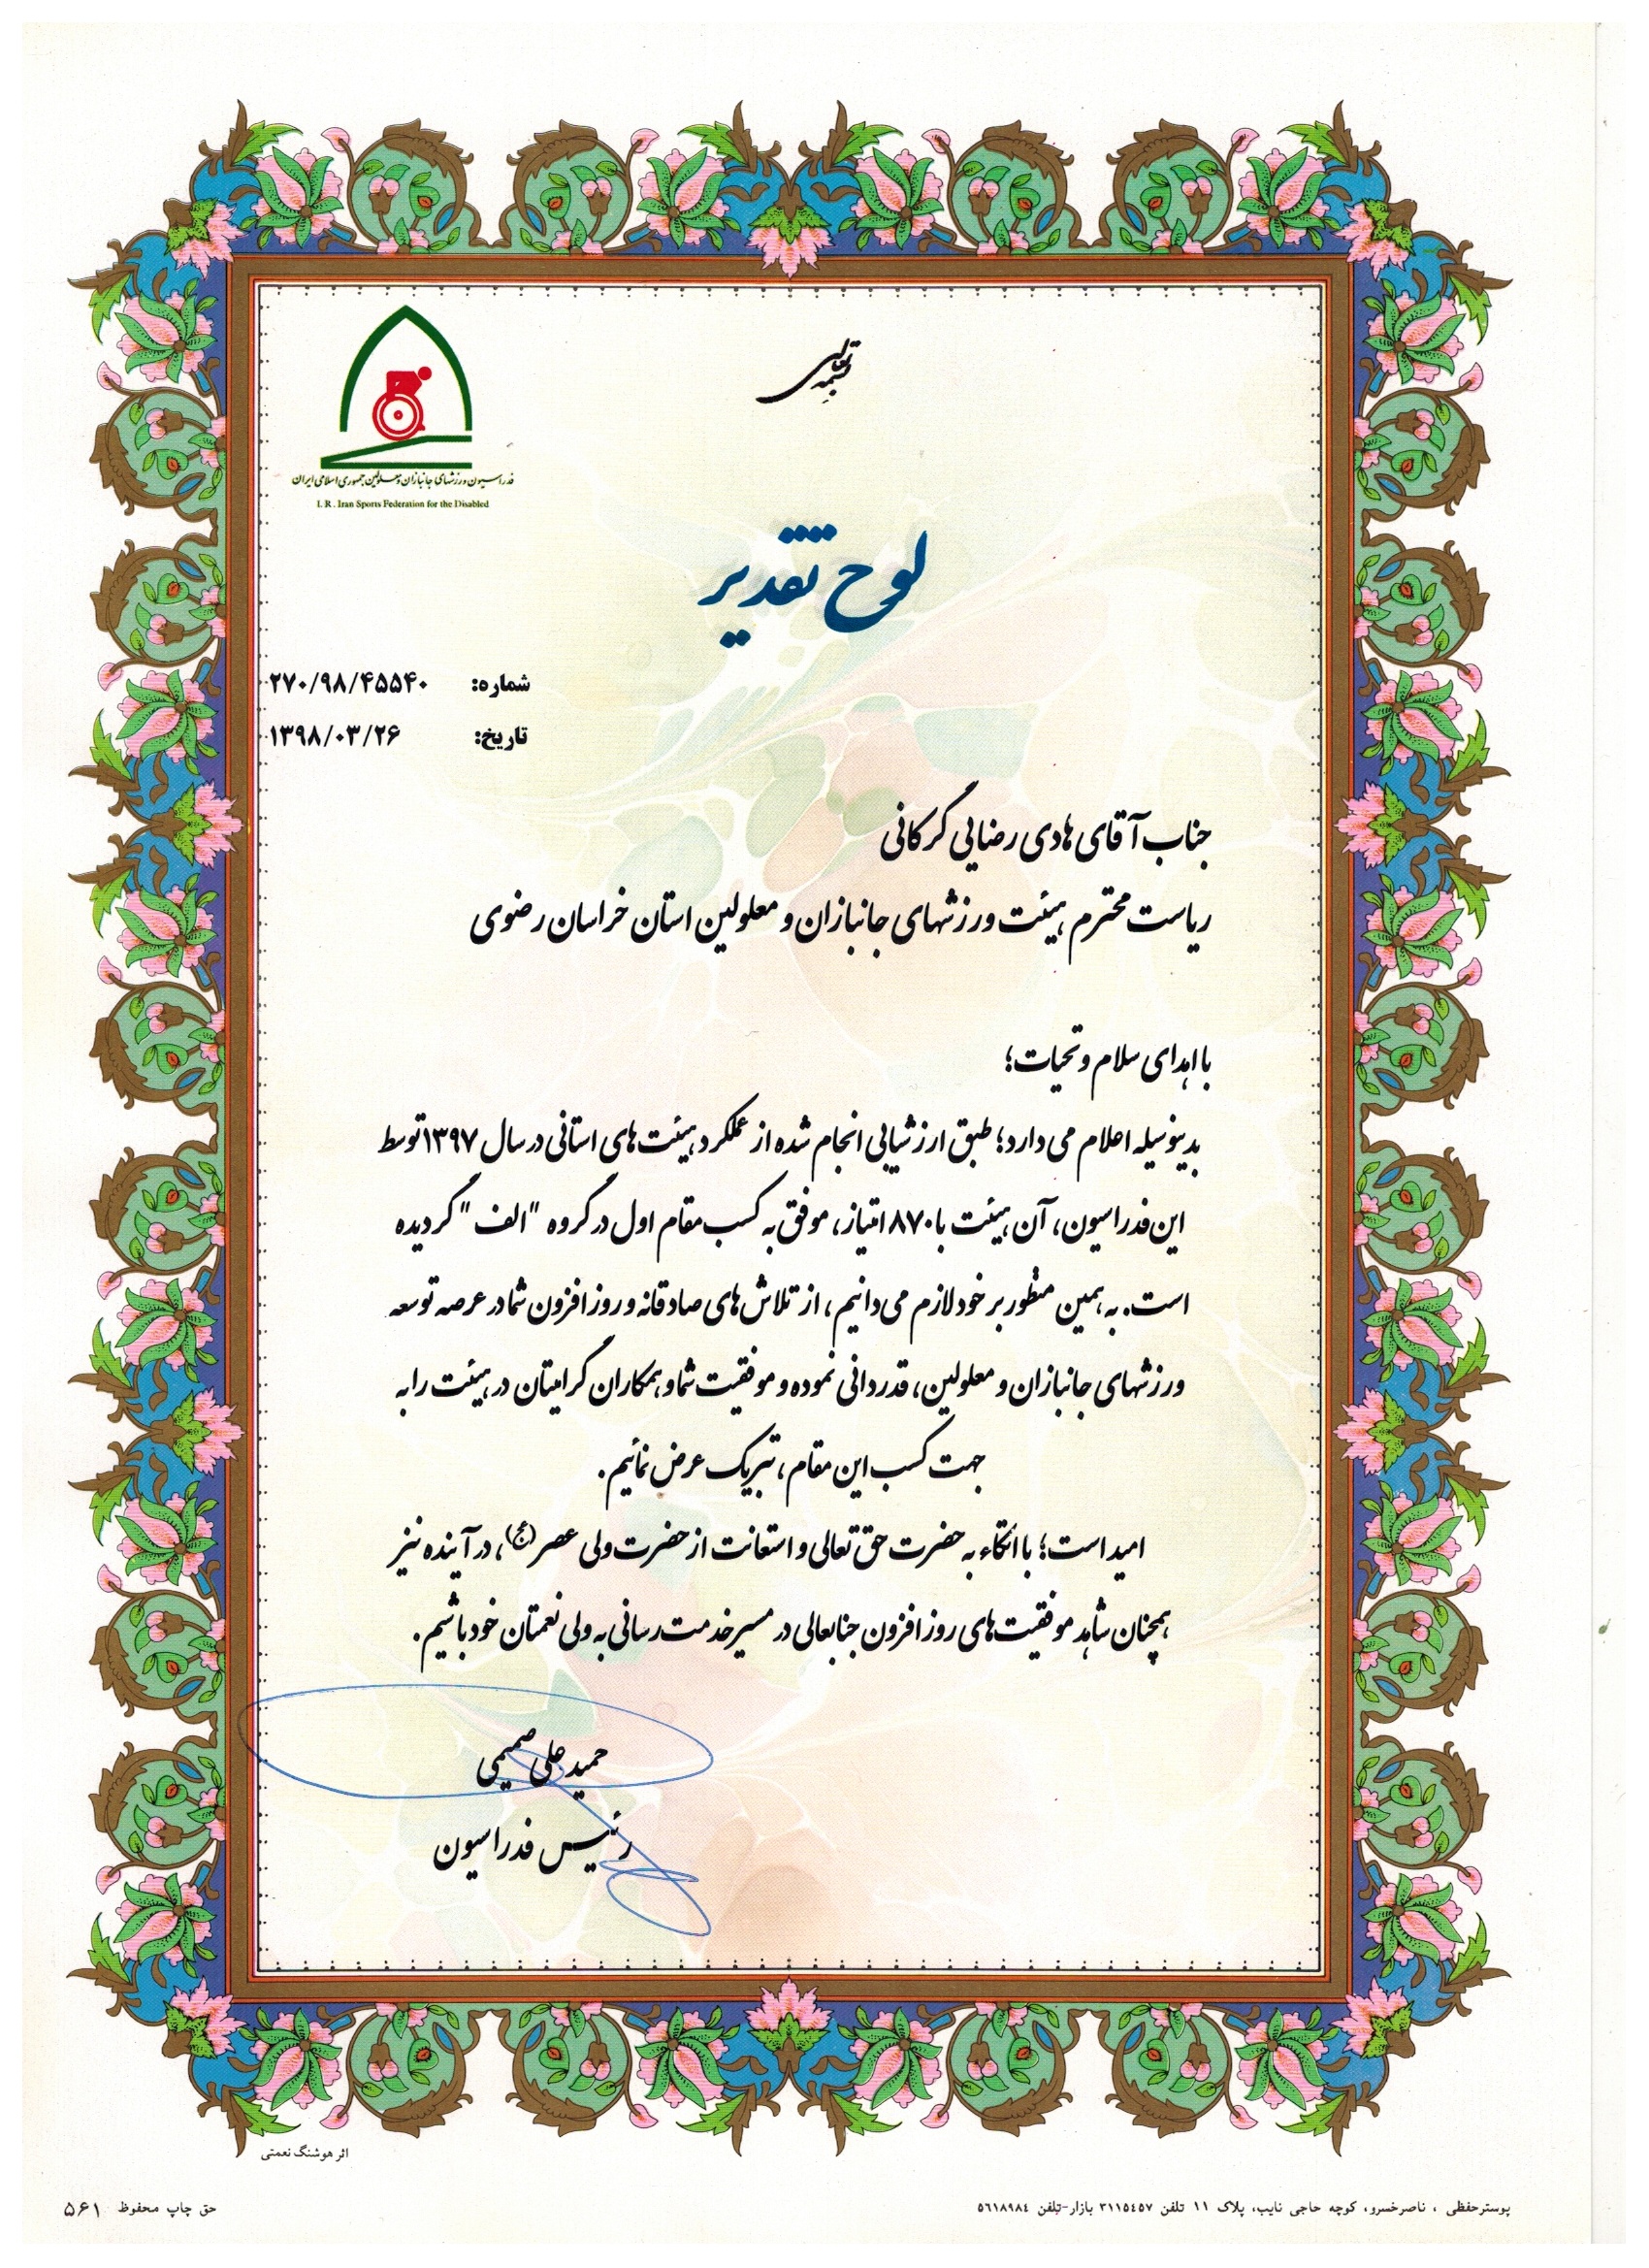 بسمه تعالی
فدراسیون ورزشهای جانبازان و معلولین جمهوری اسلامی ایران
I. R. Iran Sports Federation for the Disabled
لوح تقدیر
شماره: ۲۷۰/۹۸/۴۵۵۴۰
تاریخ: ۱۳۹۸/۰۳/۲۶
جناب آقای هادی رضایی گرکانی
ریاست محترم هیئت ورزشهای جانبازان و معلولین استان خراسان رضوی
با اهدای سلام و تحیات؛
بدینوسیله اعلام می دارد؛ طبق ارزشیابی انجام شده از عملکرد هیئت های استانی در سال ۱۳۹۷ توسط
این فدراسیون، آن هیئت با ۸۷۰ امتیاز، موفق به کسب مقام اول در گروه "الف" گردیده
است. به همین منظور بر خود لازم می دانیم، از تلاش های صادقانه و روزافزون شما در عرصه توسعه
ورزشهای جانبازان و معلولین، قدردانی نموده و موفقیت شما و همکاران گرامیتان در هیئت را به
جهت کسب این مقام، تبریک عرض نمائیم.
امید است؛ با اتکاء به حضرت حق تعالی و استعانت از حضرت ولی عصر (عج)، در آینده نیز
همچنان شاهد موفقیت های روزافزون جنابعالی در مسیر خدمت رسانی به ولی نعمتان خود باشیم.
حمید علی صمیمی
رئیس فدراسیون
اثر هوشنگ نعمتی
پوستر حفظی ، ناصرخسرو، کوچه حاجی نایب، پلاک ۱۱ تلفن ۳۱۱۵۴۵۷ بازار-تلفن ۵۶۱۸۹۸۴
حق چاپ محفوظ ۵۶۱